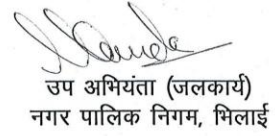 उप अभियंता (जलकार्य)
नगर पालिक निगम, भिलाई